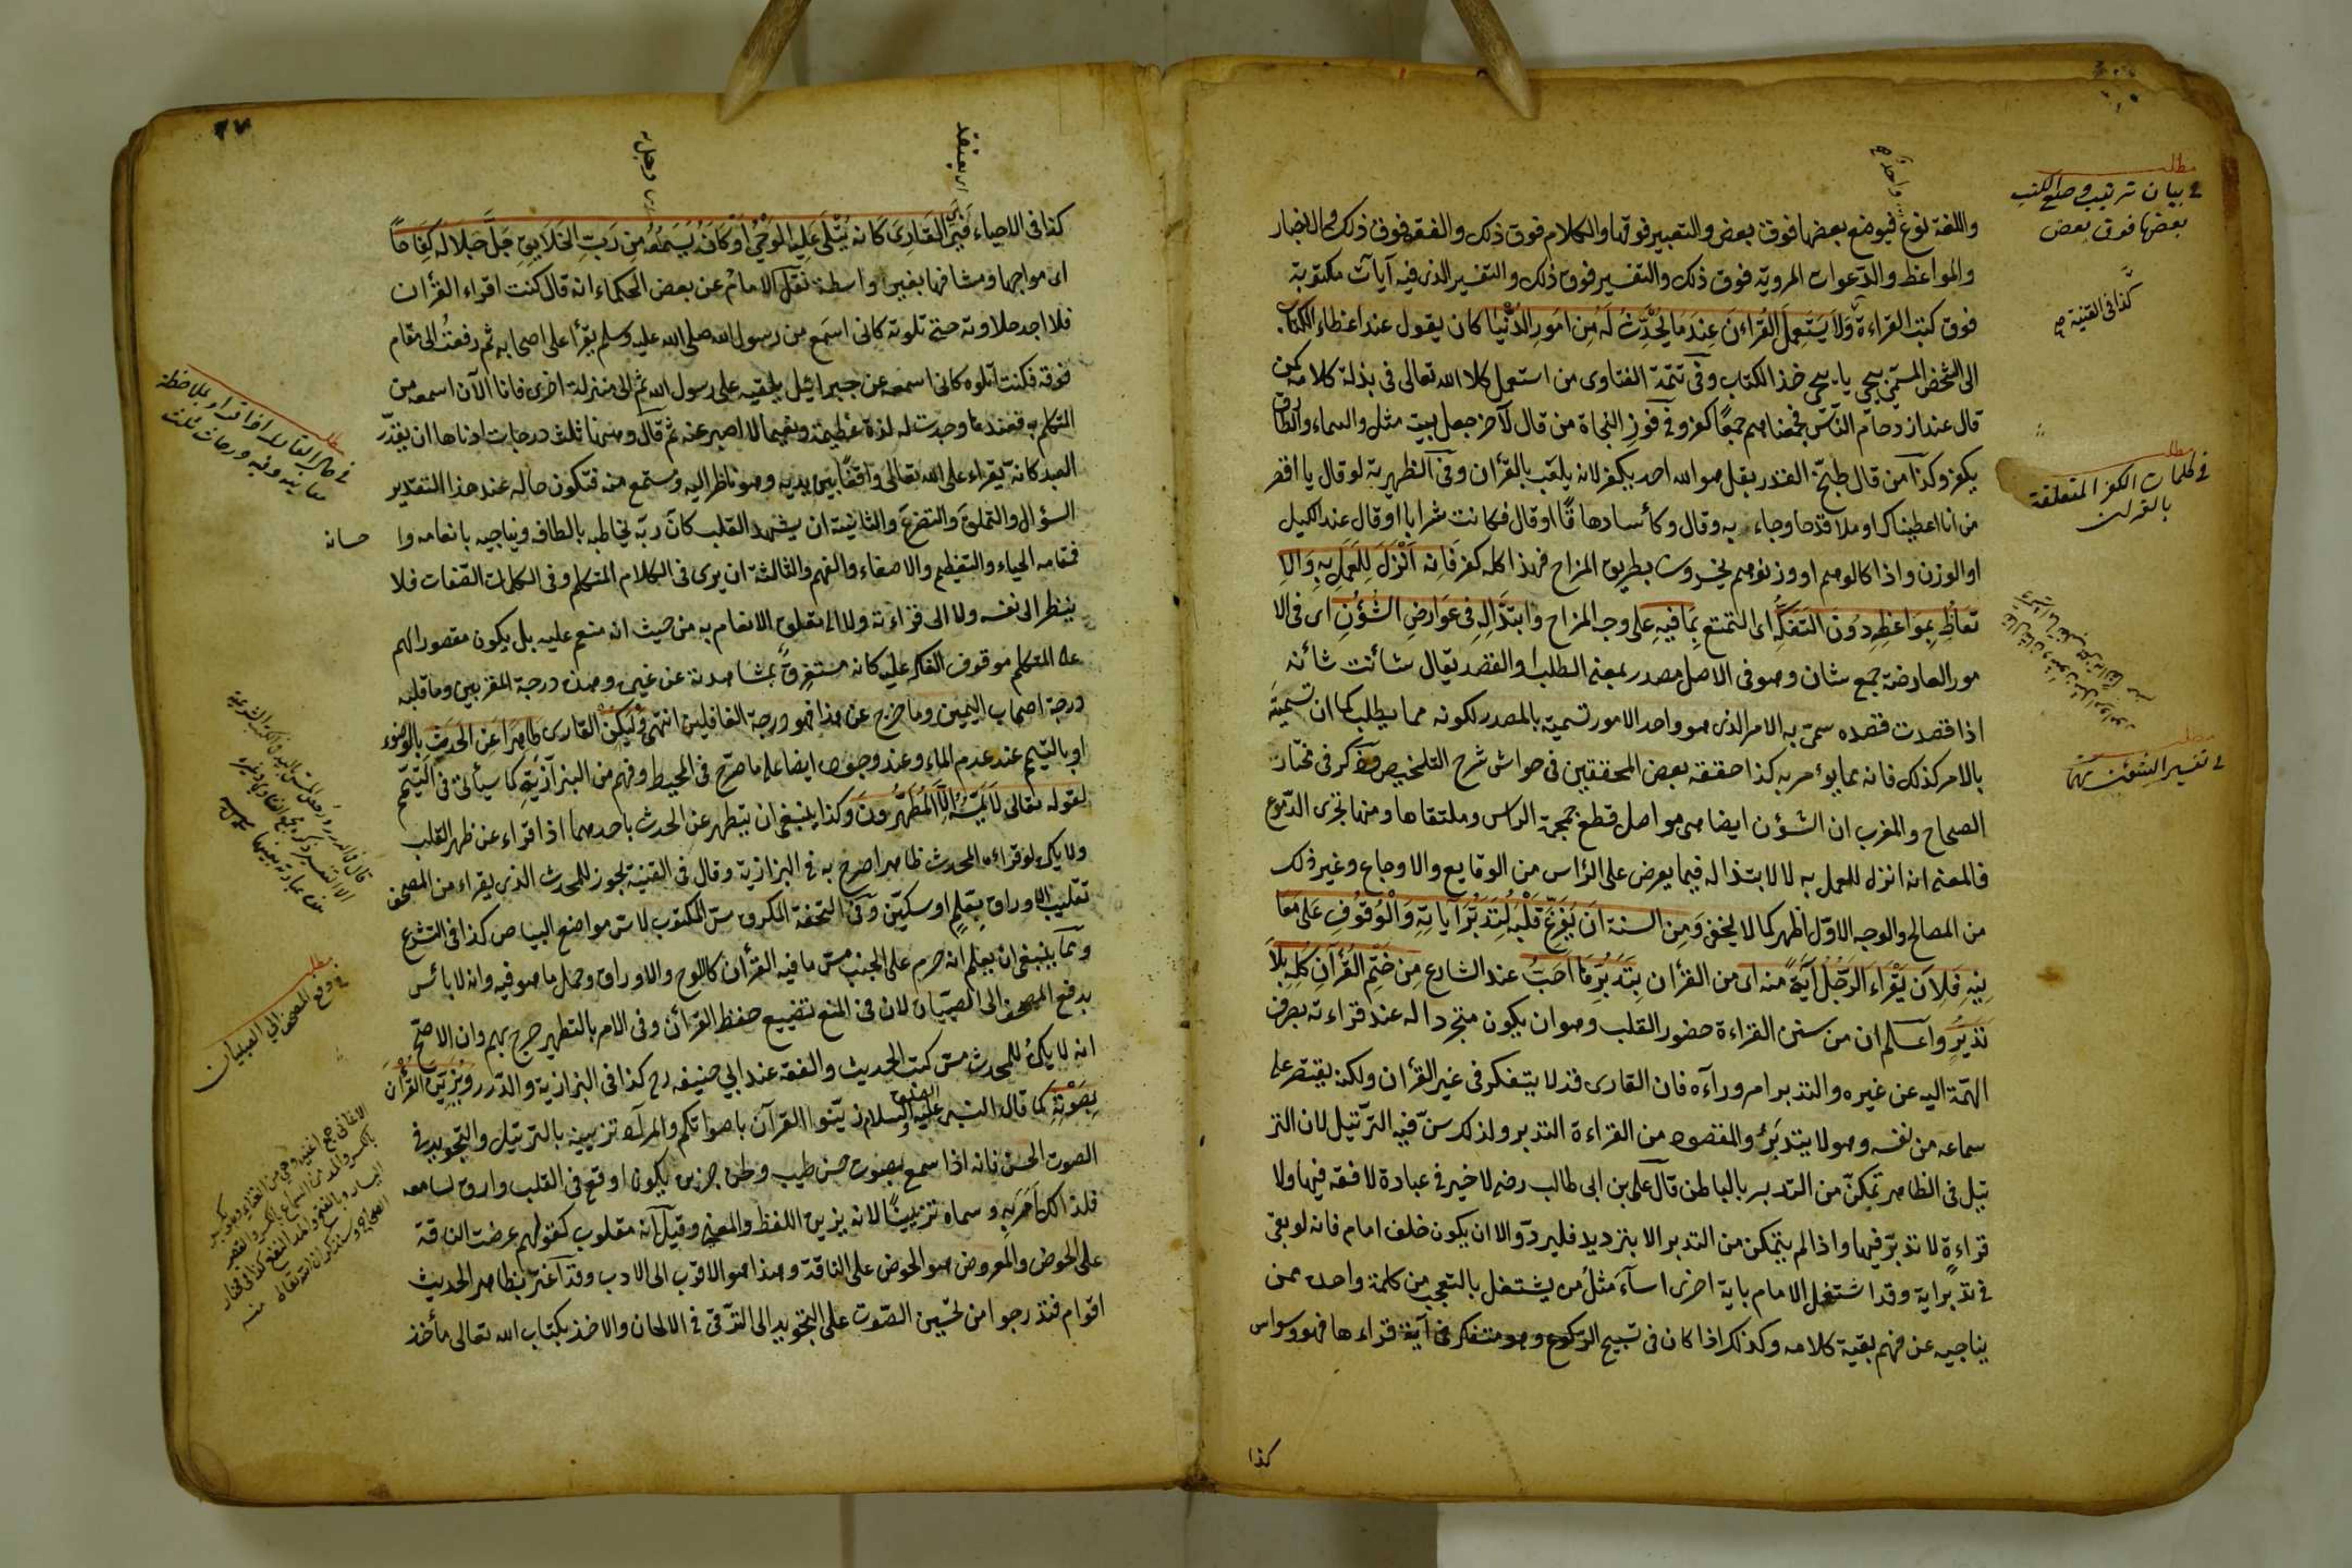 مطلب
في بيان ترتيب وضع الكتب
بعضها فوق بعض
واللغة نوع فيوضع بعضها فوق بعض والتعبير فوقها والكلام فوق ذلك والفقه فوق ذلك والاخبار
والمواعظ والدعوات المروية فوق ذلك والتفسير فوق ذلك والتفسير الذى فيه آيات مكتوبة
فوق كتب القراءة وَلاَ يَسْتَعمِلَ القُراءنَ عِنْدَ مَا يَحْدُثُ لَهُ مِن اُمورِ الدُنْيا كان يقول عند اعطاء الكتاب
كذا فى القنية
الى الشخص المسمى بيحيى يا يحيى خذ الكتاب وفى تتمة الفتاوى من استعمل كلام الله تعالى فى بذلة كلامه كمن
قال عند ازدحام الناس فجمعناهم جمعًا كفر وفى فوز النجاة من قال لآخر جعل بيته مثل والسماء والطارق
يكفر وكذا من قال طبخ القدر بقل هو الله احد يكفر لانه يلعب بالقرأن وفى الظهيرية لو قال يا اقصر
مطلب
فى كلمات الكفر المتعلقة
بالقران
من انا اعطيناك او ملأ قدحا وجاء به وقال وكأسا دهاقًا او قال فكانت شرابا او قال عند الكيل
او الوزن واذا كالوهم او وزنوهم يخسرون بطريق المزاح فهذا كله كفر فَاِنه اُنْزِلَ لِلعَمَلِ بِهِ وَالاِ
تعاظِ بِمَواعِظِهِ دُونَ التَفَكُّهِ اى التمتع بِمَا فيهِ على وجه المزاح وَابتذَالِهِ فِى عَوَارِضِ الشُؤنِ اى فى الا
مور العارضة جمع شان وهو فى الاصل مصدر بمعنى الطلب والقصد يقال شأنت شأنه
اذا قصدت قصده سمى به الامر الذى هو واحد الامور تسمية بالمصدر لكونه مما يطلب كما ان تسمية
مطلب
فى تفسير الشئون
بالامر كذلك فانه مما يؤمر به كذا حققه بعض المحققين فى حواش شرح التلخيص وذكر فى مختار
الصحاح والمغرب ان الشؤن ايضا هى مواصل قطع جمجمة الراس وملتقاها ومنها تجرى الدموع
فالمعنى انه انزل للعمل به لا لابتذاله فيما يعرض على الرأس من الوقايع والاوجاع وغير ذلك
من المصالح والوجه الاول اظهر كما لا يخفى وَمِن السنة اَن يُفَرِّغَ قَلْبَهُ لِتَدَبُّرِ آياتِهِ وَالْوُقُوفِ عَلى مَعَا
نِيهِ فَلِاَن يَقْرَاَ الرَجُلُ آيَةً منه اى من القرأن بِتَدَبُّرِ مَّا اَحَبُّ عند الشارع مِن خَتْمِ القُرْآنِ كُلِهِ بِلاَ
تَدَبُّرٍ واعلم ان من سنن القراءة حضور القلب وهو ان يكون متجردا له عند قراءته بصرف
الهمة اليه عن غيره والتدبر امر وراءه فان القارى قد لا يتفكر فى غير القرأن ولكنه يقتصر على
سماعه من نفسه وهو لا يتدبره والمقصود من القراءة التدبر ولذلك سن فيه الترتيل لان التر
تيل فى الظاهر تمكن من التدبر بالباطن قال على بن ابى طالب رضه لا خير فى عبادة لا فقه فيها ولا
قراءة لا تدبر فيها واذا لم يتمكن من التدبر الا بترديد فليردد الا ان يكون خلف امام فانه لو بقى
فى تدبر اية وقد اشتغل الامام باية اخرى اساء مثل من يشتغل بالتعجب من كلمة واحدة ممن
يناجيه عن فهم بقية كلامه وكذلك اذا كان فى تسبيح الركوع وهو متفكر فى آية قراءها فهو وسواس
كذا
٢٧
اى يعتقد
كذا فى الاحياء فَيَرَى القَارِىَ كَانه يُتْلَى عَلِيهِ الوَحْىُ اَوْ كَانَهُ يَسْمَعُهُ مِن رَبِّ الخَلَايِقِ جَلَّ جَلَالهَ كِفَاحًا
اى مواجها ومشافها بغير واسطة نقل الامام عن بعض الحكماء انه قال كنت اقراء القرأن
فلا اجد حلاوته حتى تلوته كانى اسمع من رسول الله صلى الله عليه وسلم يقرأ على اصحابه ثم رفعت الى مقام
فوقه فكنت اتلوه كانى اسمعه عن جبرائيل يلقيه على رسول الله ثم الى منزلة اخرى فانا الآن اسمعه من
المتكلم به فعندها وجدت له لذة عظيمة ونعيما لا اصبر عنه ثم قال وههنا ثلث درجات ادناها ان يقدر
مطلب
العبد كانه يقراء على الله تعالى واقفًا بين يديه وهو ناظر اليه ومستمع منه فتكون حاله عند هذا التقدير
السؤال والتملق والتضرع والثانية ان يشهد القلب كان ربه يخاطبه بالطافه ويناجيه بانعامه وا حسانه
فمقامه الحياء والتعظيم والاصغاء والفهم والثالثة ان يرى فى الكلام المتكلم وفى الكلمات الصفات فلا
ينظر الى نفسه ولا الى قراءته ولا الى تعلق الانعام به من حيث انه منعم عليه بل يكون مقصور الهم
على المتكلم موقوف الفكر عليه كانه مستغرق بمشاهدته عن غيره وهذه درجة المقربين وما قبله
درجة اصحاب اليمين وما خرج عن هذا فهو درجة الغافلين انتهى وَلْيَكُنْ القارى طَاهِرًا عَنِ الحَدَثِ بالوضوء
او بالتيمم عند عدم الماء وعند وجوده ايضا على ما صرح فى المحيط وفهم من البزازية كما سيأتى فى التيمم
لقوله تعالى لَا يَمَسُّهُ اِلَّا المُطَهَّرُونَ وكذا ينبغى ان يتطهر عن الحدث باحدهما اذا اقراء عن ظهر القلب
ولا يكره لو قراءه المحدث ظاهرا صرح به فى البزازية وقال فى القنية يجوز للمحدث الذى يقراء من المصحف
تقليب الاوراق بقلم او سكين وفى التحفة المكروه مس المكتوب لا مس مواضع البياض كذا فى التشرع
ومما ينبغى ان يعلم انه حرم على الجنب مس ما فيه القرأن كاللوح والاوراق وحمل ما هو فيه وانه لا بائس
مطلب
فى دفع المصحف الى الصبيان
بدفع المصحف الى الصبيان لان فى المنع تضييع حفظ القرأن وفى الامر بالتطهير حرج بهم وان الاصح
انه لا يكره للمحدث مس كتب الحديث والفقه عند ابى حنيفه رح كذا فى البزازية والدرر وَيُزَيِّنَ القُرْأنَ
بِصَوْتِهِ كما قال النبى عليه الصلوة والسلام زينوا القرآن باصواتكم والمراد تزيينه بالترتيل والتجويد فى
الصوت الحسن فانه اذا سمع بصوت حسن طيب ولحن حزين يكون اوقع فى القلب وارق لسامعه
فلذالك اَمَرَ بِهِ وسماه تزيينًا لانه يزين اللفظ والمعنى وقيل انه مقلوب كقولهم عرضت الناقة
على الحوض والمعروض هو الحوض على الناقة وهذا هو الاقرب الى الادب وقد اغتر بظاهر الحديث
اقوام فتدرجوا من تحسين الصوت على التجويد الى الترقى فى الالحان والاخذ بكتاب الله تعالى مأخذ